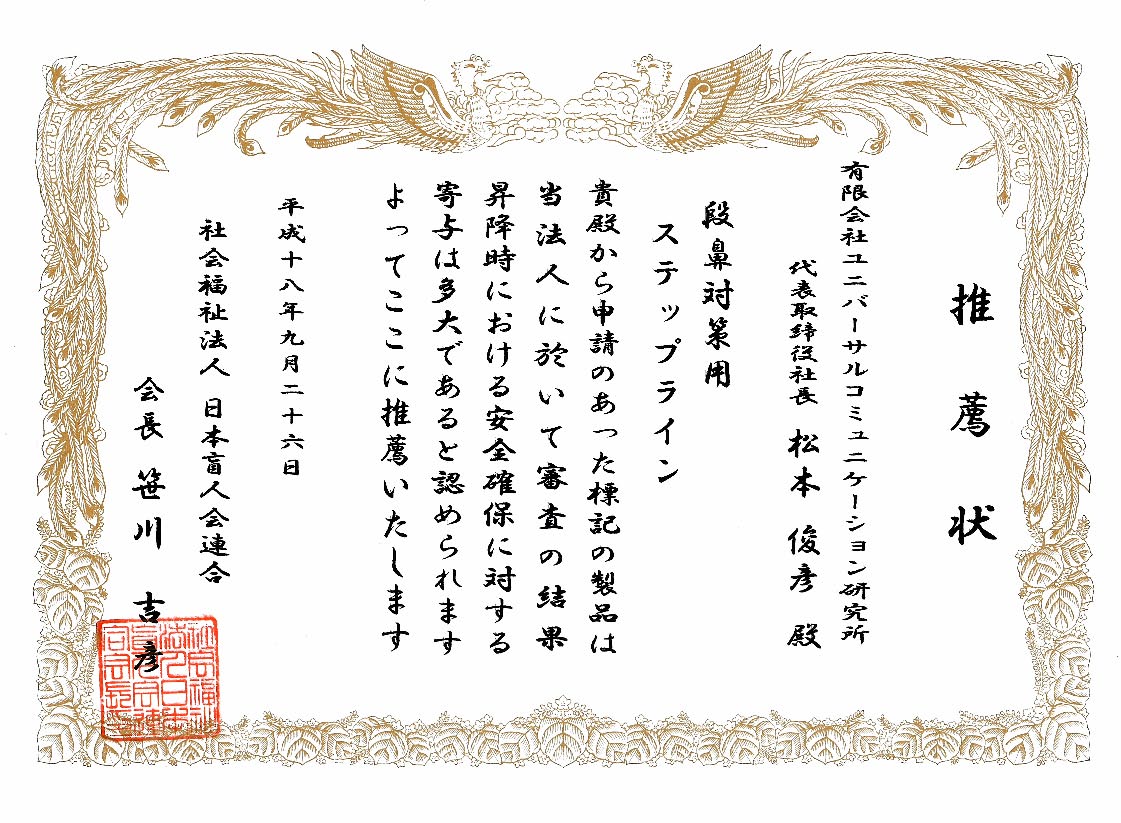 推薦状
有限会社ユニバーサルコミュニケーション研究所
代表取締役社長 松本 俊彦 殿
段鼻対策用
ステップライン
貴殿から申請のあった標記の製品は
当法人に於いて審査の結果
昇降時における安全確保に対する
寄与は多大であると認められます
よってここに推薦いたします
平成十八年九月二十六日
社会福祉法人 日本盲人会連合
会長 笹川 吉彦